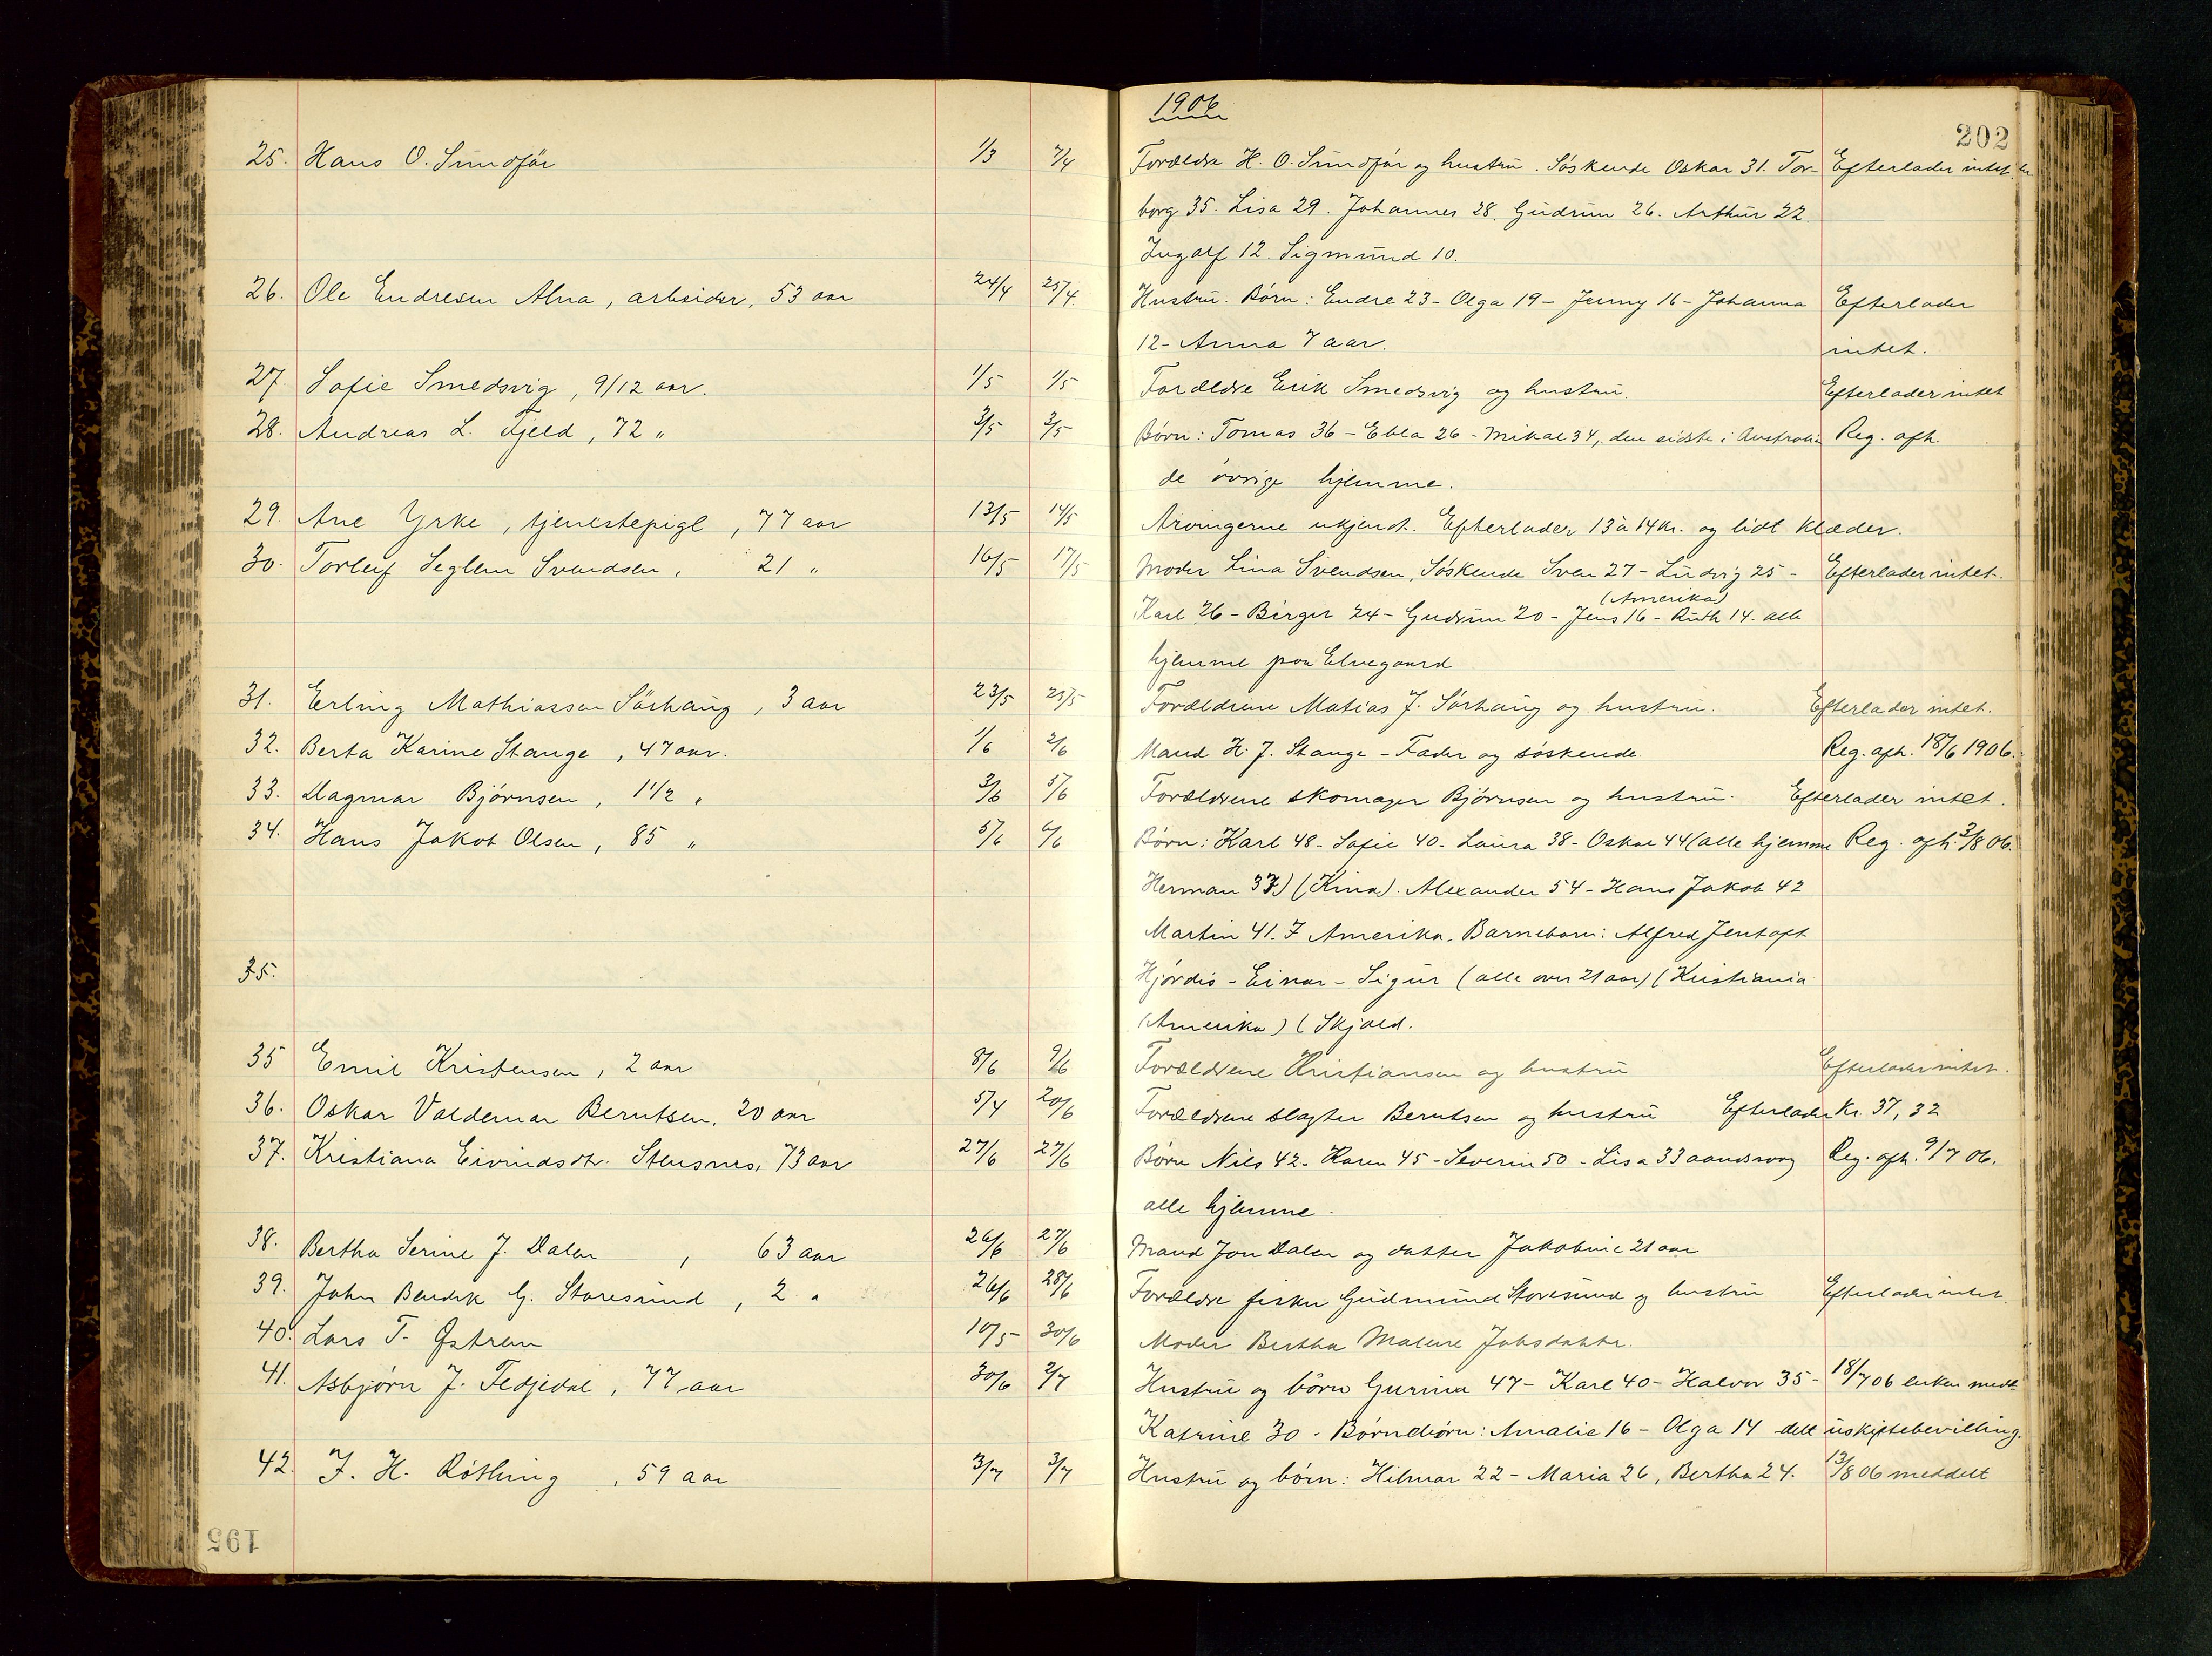 1906
202
25. Hans O. Sundför 1/3 7/4 Forældre H. O. Sundför og hustru. Söskende Oskar 31. Tor- Efterlader intet
borg 35. Lisa 29. Johannes 28. Gudrun 26. Arthur 22.
Ingolf 12. Sigmund 10.
26. Ole Endresen Alna, arbeider, 53 aar 24/4 25/4. Hustru. Børn: Endre 23 - Olga 19 - Jenny 16 - Johanna Efterlader
12 - Anna 7 aar. intet.
27. Sofie Smedsvig, 9/12 aar. 1/5 1/5 Forældre Erik Smedsvig og hustru. Efterlader intet
28. Andreas L. Fjeld, 72 " 3/5 3/5 Børn: Tomas 36 - Ebla 26 - Mikal 34, den sidste i Australien Reg. afh.
de øvrige hjemme.
29. Ane Yrke, tjenestepige, 77 aar 13/5 14/5 Arvingerne ukjendt. Efterlader 13 à 14 kr. og lidt klæder.
30. Torleif Seglem Svendsen, 21 " 16/5 17/5 Moder Lina Svendsen, Söskende Sven 27 - Ludvig 25 - Efterlader intet.
(Amerika)
Karl 26 - Birger 24 - Gudrun 20 - Jens 16 - Ruth 14. alle
hjemme paa Elvegaard
31. Erling Mathiassen Sörhaug, 3 aar 23/5 25/5 Forældrene Matias J. Sörhaug og hustru. Efterlader intet.
32. Berta Karine Stange, 47 aar. 1/6 2/6 Mand H. J. Stange - Fader og söskende. Reg. afh. 18/6 1906.
33. Dagmar Bjørnsen, 1 1/2 " 3/6 5/6 Forældrene skomager Bjørnsen og hustru. Efterlader intet.
34. Hans Jakob Olsen, 85 " 5/6 6/6 Børn: Karl 48 - Sofie 40 - Laura 38 - Oskar 44 (alle hjemme Reg. afh. 3/8 06.
Herman 37) (Kina). Alexander 54 - Hans Jakob 42
Martin 41. I Amerika. Barnebarn: Alfred Jentoft
35. Hjördis - Einar - Sigur (alle over 21 aar) (Kristiania
(Amerika) (Skjold.
35 Emil Kristensen, 2 aar 8/6 9/6 Forældrene Kristiansen og hustru Efterlader intet.
36. Oskar Valdemar Berntsen, 20 aar 5/4 20/6 Forældrene slagter Berntsen og hustru Efterlader Kr. 37,32
37. Kristiana Eivindsdtr. Stensnes, 73 aar 27/6 27/6 Børn Nils 42 - Karen 45 - Severin 50 - Lisa 33 aandssvag Reg. afh. 9/7 06.
alle hjemme.
38. Bertha Serine J. Dalen, 63 aar 26/6 27/6 Mand Jon Dalen og datter Jakobine 21 aar
39. John Bendik G. Storesund, 2 " 26/6 28/6 Forældre fisker Gudmund Storesund og hustru Efterlader intet.
40. Lars T. Østrem 10/5 30/6 Moder Bertha Malene Jobsdatter.
41. Asbjørn J. Fedjedal, 77 aar 30/6 2/7 Hustru og börn Gurina 47 - Karl 40 - Halvor 35 - 18/7 06 enken medt
Katrine 30 - Børnebørn: Amalie 16 - Olga 14 delt uskiftebevilling.
42. J. H. Röthing, 59 aar 3/7 3/7 Hustru og börn: Hilmar 22 - Maria 26, Bertha 24. 13/8 06 meddelt
195